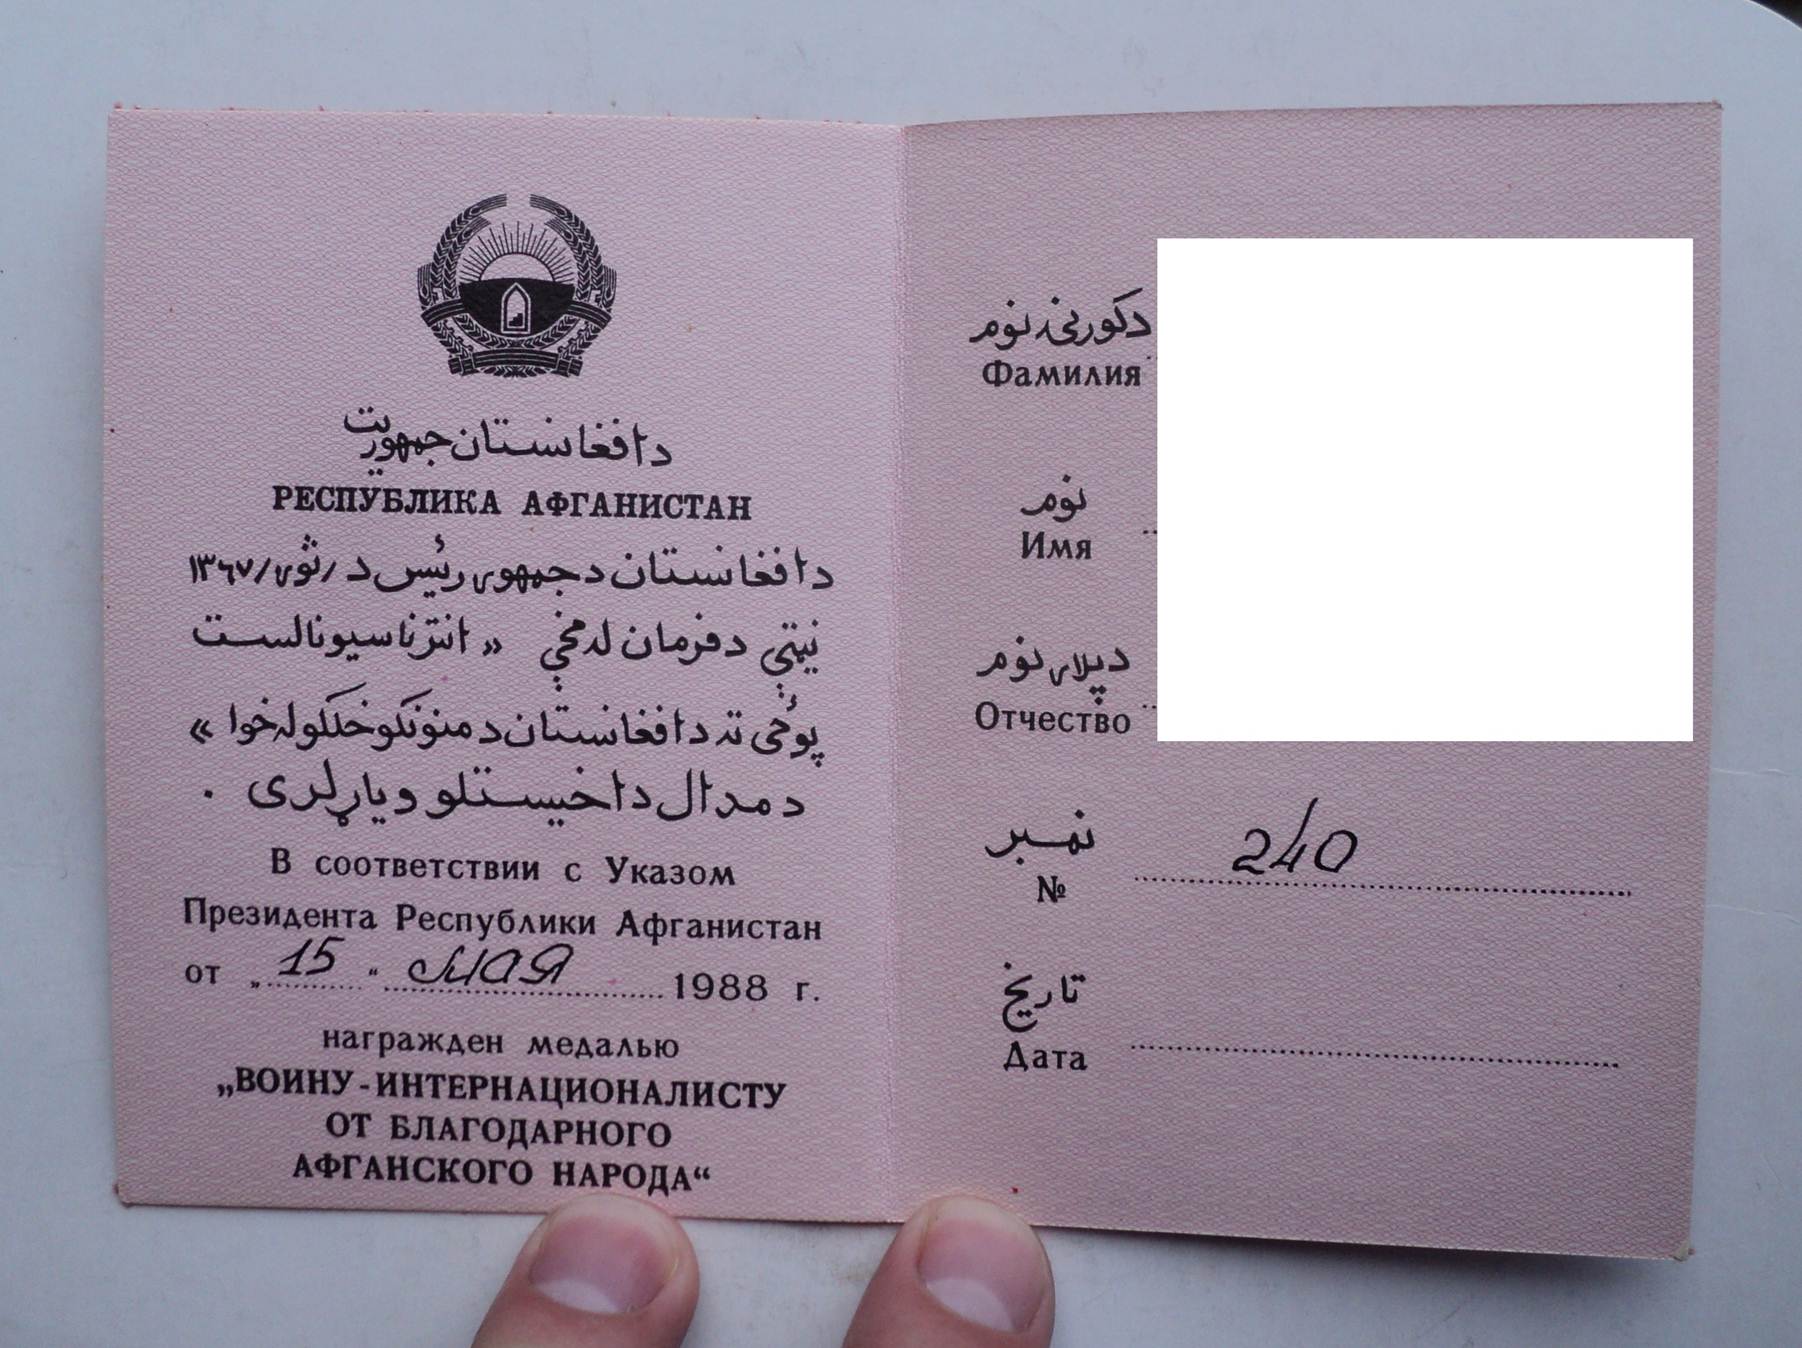 دافغانستان جمهوریت
РЕСПУБЛИКА АФГАНИСТАН
دافغانستان دجمهوری رئیس د /ثور/ ۱۳۶۷
نیټې دفرمان له مخې « انترناسیونالست
پوځی ته دافغانستان دمنونکو خلکو له خوا »
دمدال داخیستلو ویاړ لری .
В соответствии с Указом
Президента Республики Афганистан
от „15“ мая 1988 г.
награжден медалью
„ВОИНУ-ИНТЕРНАЦИОНАЛИСТУ
ОТ БЛАГОДАРНОГО
АФГАНСКОГО НАРОДА“
دکورنۍ نوم
Фамилия
نوم
Имя
دپلار نوم
Отчество
نمبر
№ 240
تاریخ
Дата